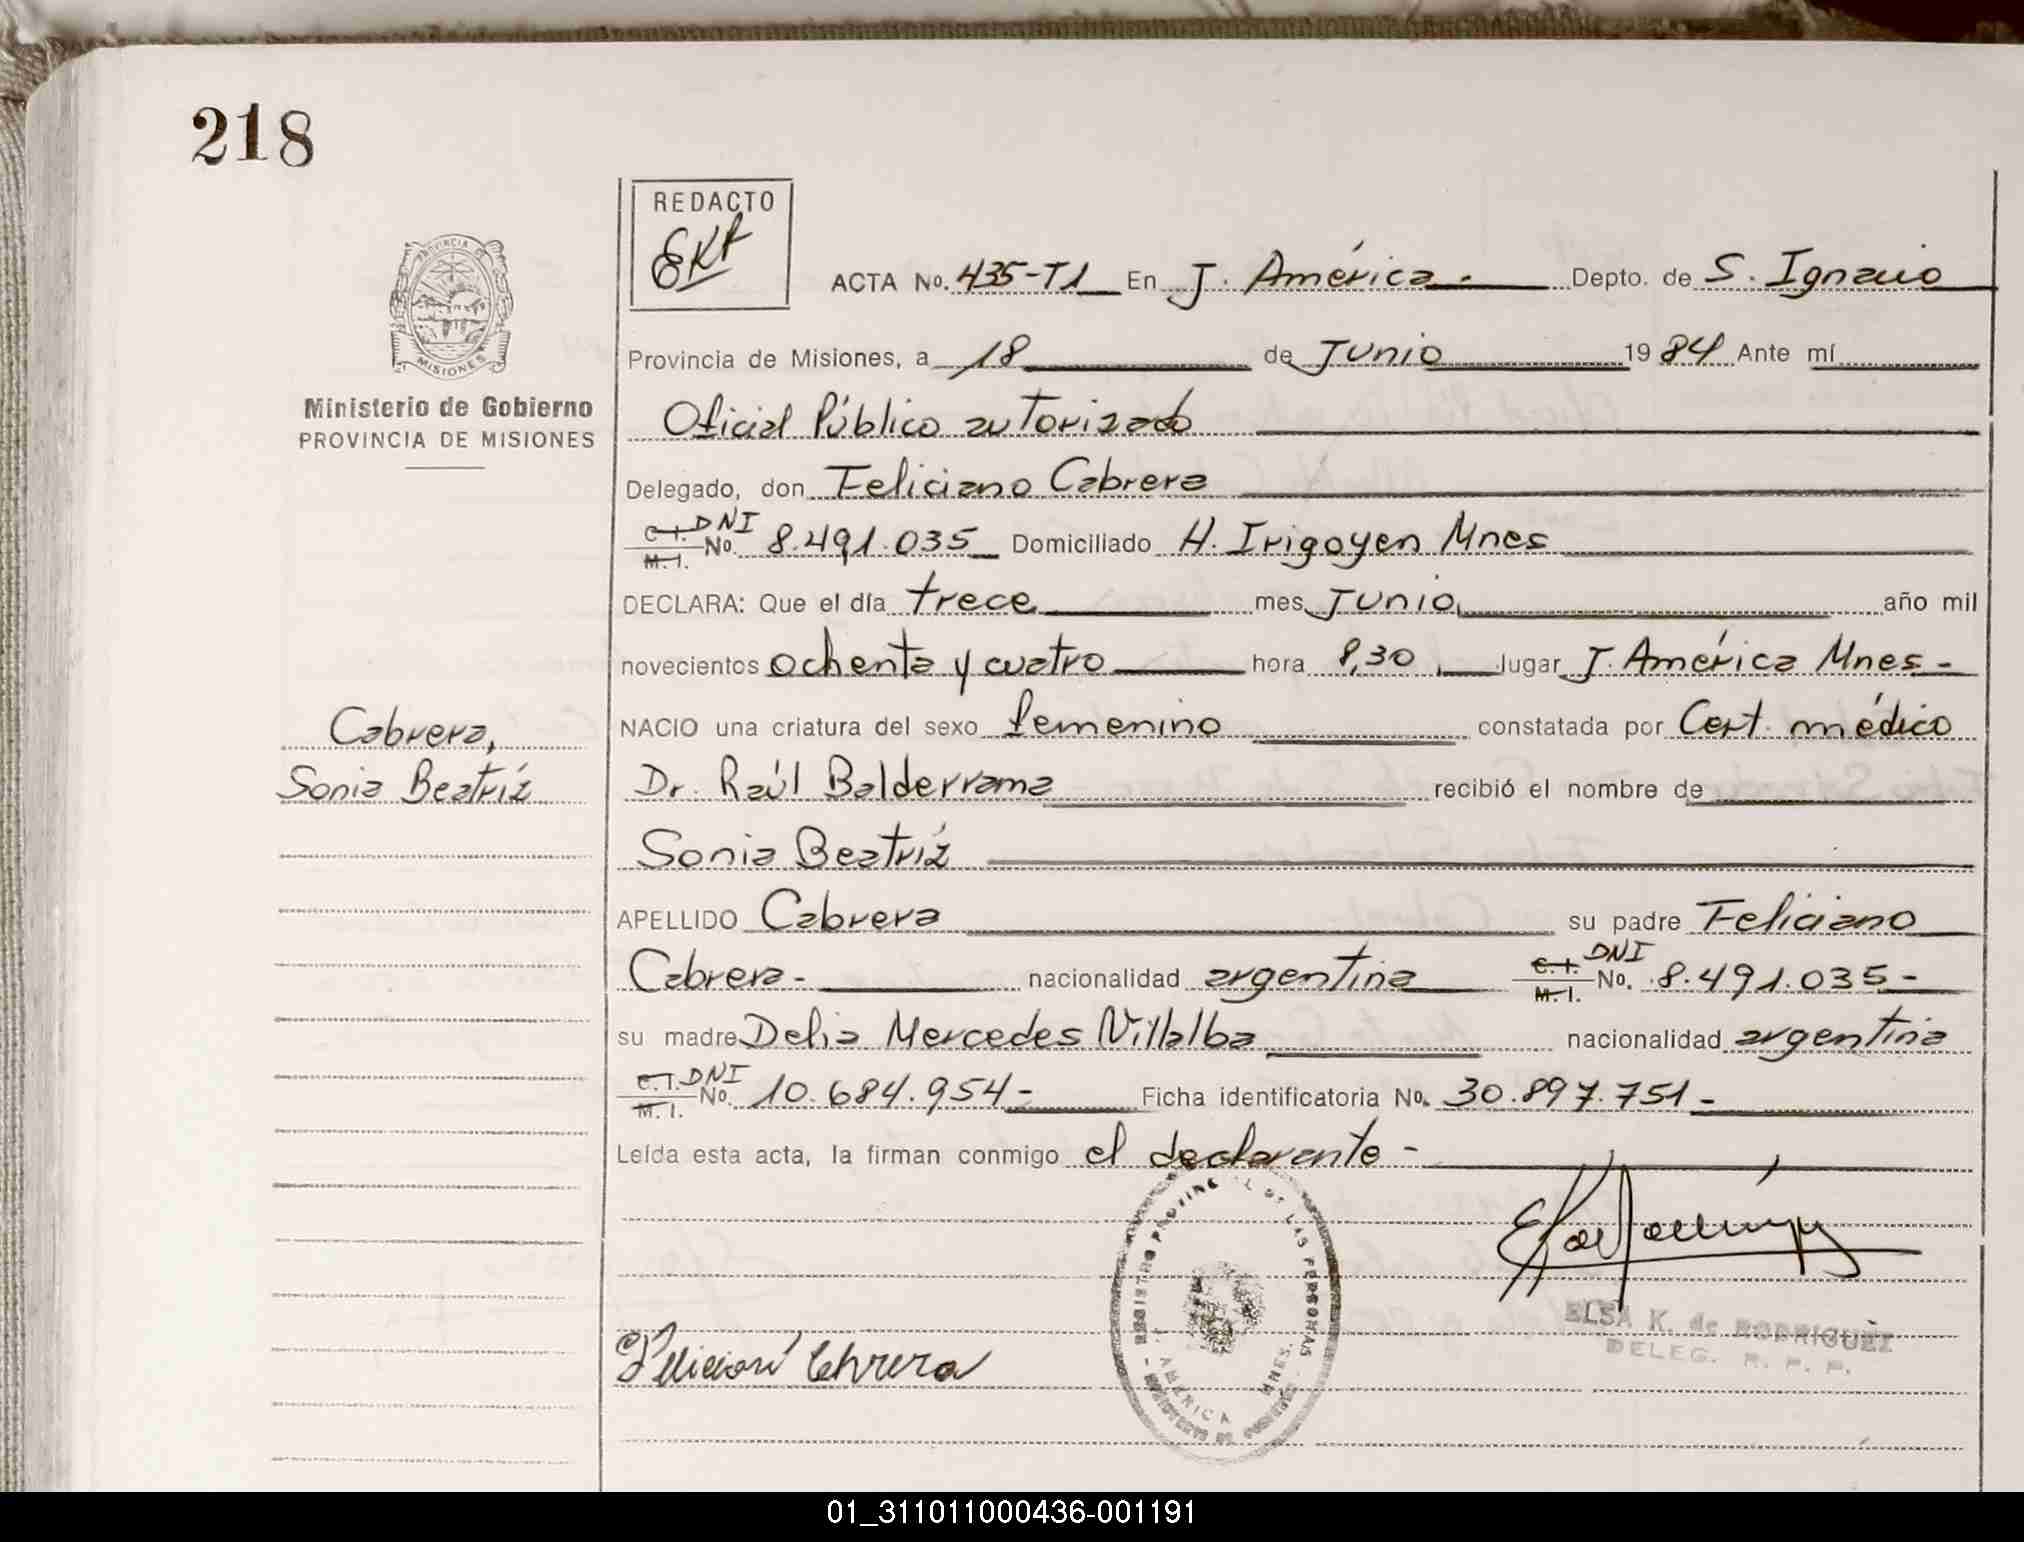 218
REDACTO
EKR
ACTA No. 435-T1 En J. América.- Depto. de S. Ignacio
PROVINCIA DE
MISIONES
Ministerio de Gobierno
PROVINCIA DE MISIONES
Provincia de Misiones, a 18 de Junio 1984 Ante mí
Oficial Público autorizado
Delegado, don Feliciano Cabrera
C.I. DNI
M.I. No. 8.491.035 Domiciliado H. Irigoyen Mnes
DECLARA: Que el día trece mes Junio año mil
novecientos ochenta y cuatro hora 8,30 lugar J. América Mnes-
Cabrera,
Sonia Beatríz
NACIO una criatura del sexo femenino constatada por Cert. médico
Dr. Raúl Balderrama recibió el nombre de
Sonia Beatríz
APELLIDO Cabrera su padre Feliciano
Cabrera- nacionalidad argentina C.I. DNI M.I. No. 8.491.035-
su madre Delia Mercedes Villalba nacionalidad argentina
C.I. DNI M.I. No. 10.684.954- Ficha identificatoria No. 30.897.751-
Leída esta acta, la firman conmigo el declarante-
REGISTRO PROVINCIAL DE LAS PERSONAS
AMERICA MNES.
ELSA K. de RODRIGUEZ
DELEG. R. P. P.
01_311011000436-001191